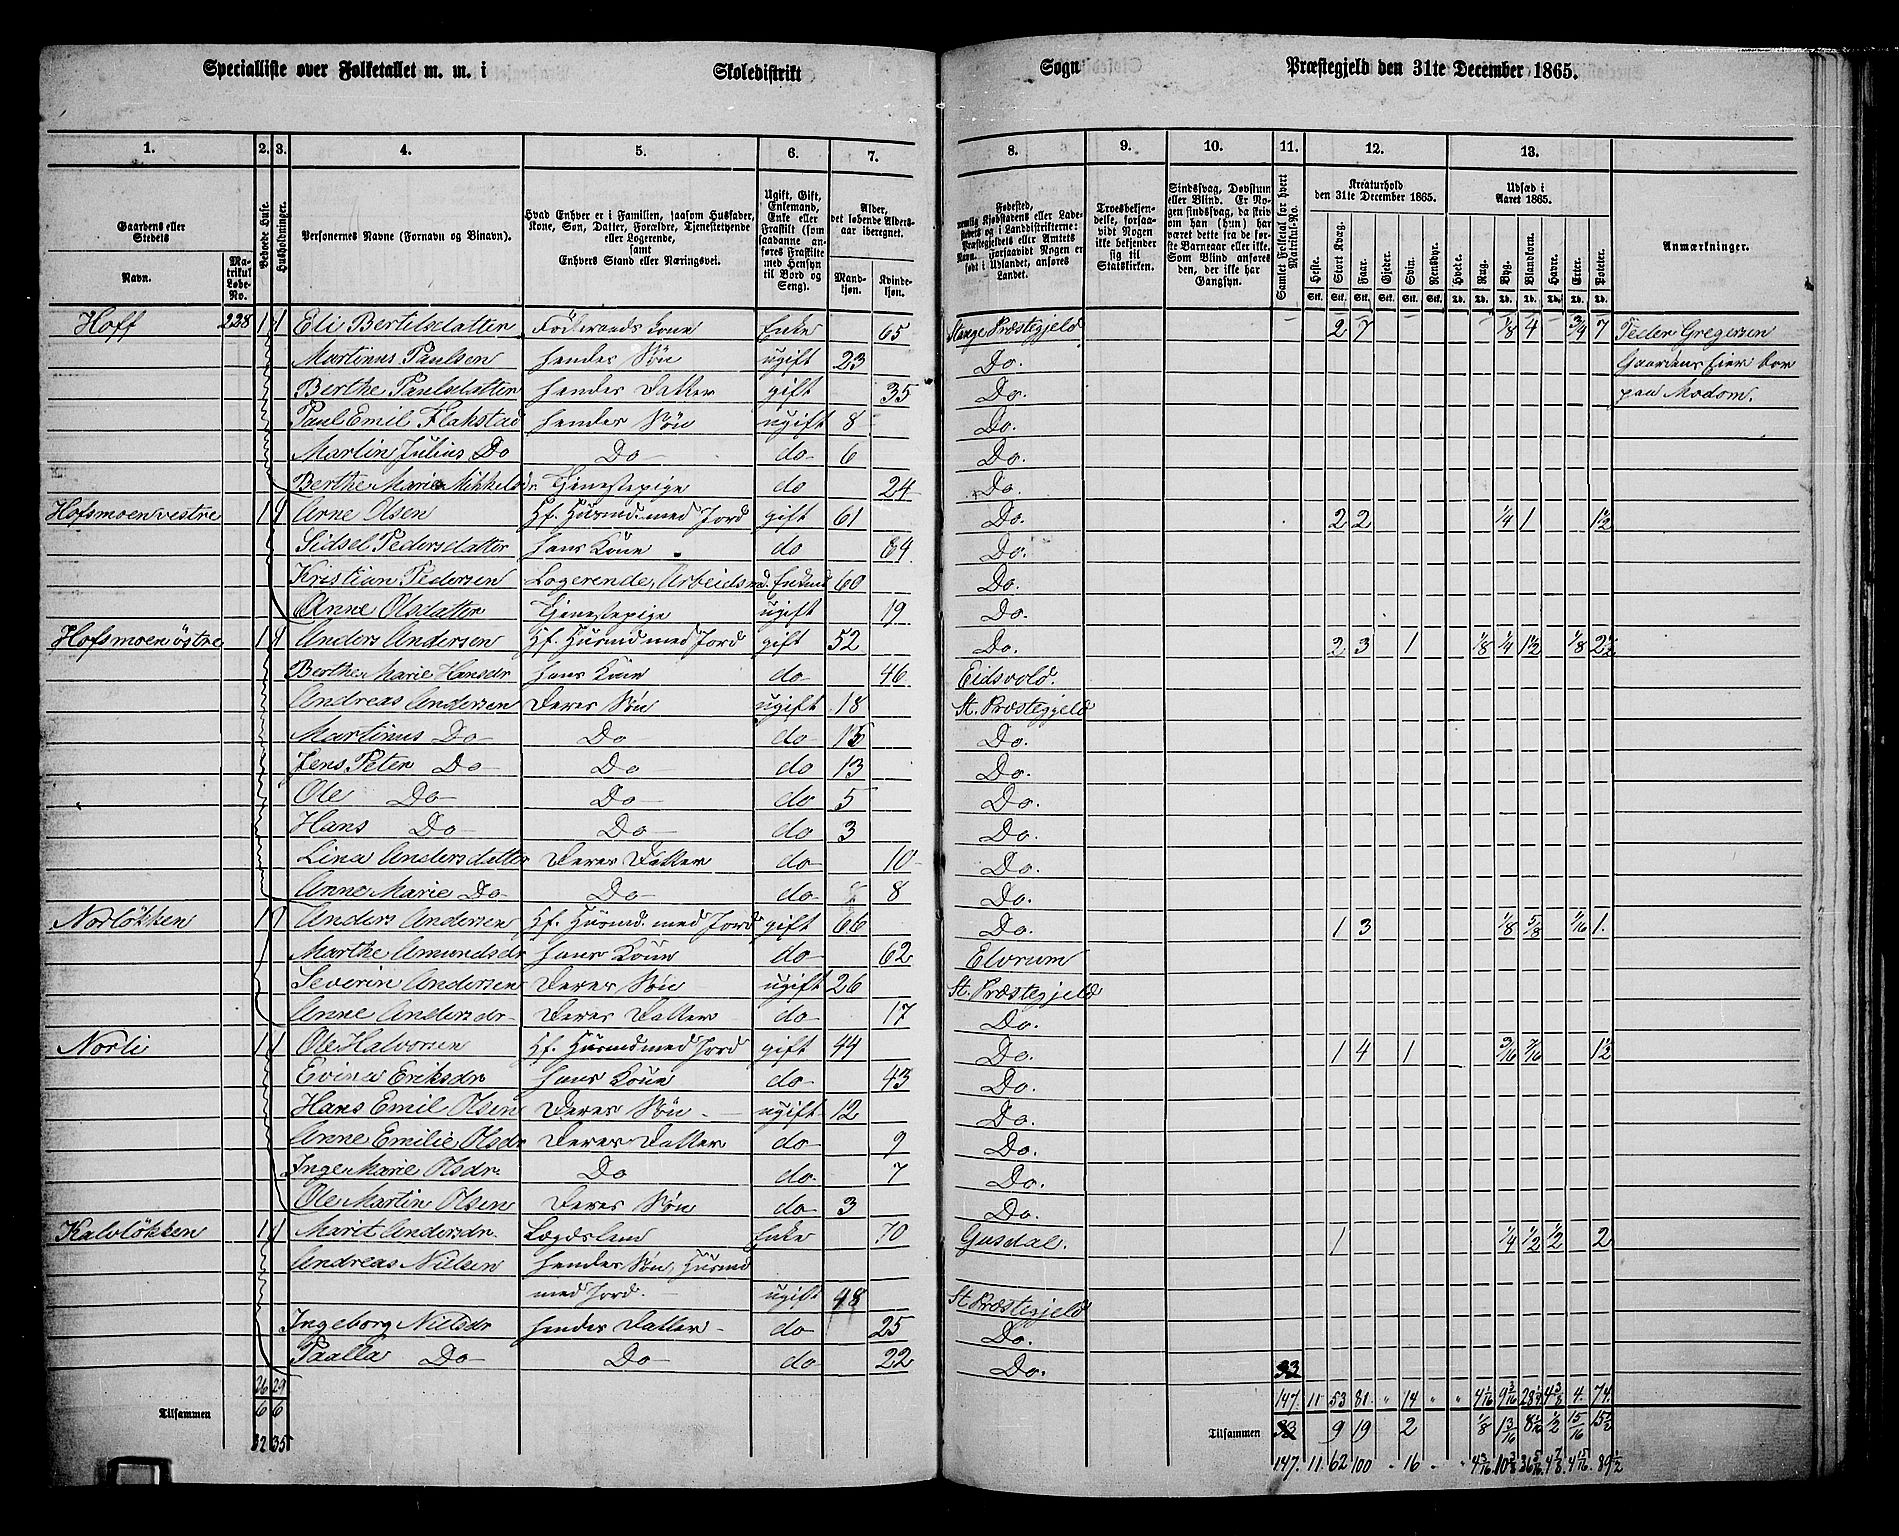 Specialliste over Folketallet m. m. i Skoledistrikt Sogn Præstegjeld den 31te December 1865.
1. 2. 3. 4. 5. 6. 7. 8. 9. 10. 11. 12. 13.
Gaardens eller Stedets
Navn.
Matrikul Løbe-No.
Beboede Huse.
Husholdninger.
Personernes Navne (Fornavn og Binavn).
Hvad Enhver er i Familien, saasom Husfader, Kone, Søn, Datter, Forældre, Tjenestetyende eller Logerende, samt Enhvers Stand eller Næringsvei.
Ugift, Gift, Enkemand, Enke eller Fraskilt (som saadanne anføres Fraskilte med Hensyn til Bord og Seng).
Alder, det løbende Aldersaar iberegnet.
Mandkjøn. Kvindekjøn.
Fødested,
Troesbekjendelse, forsaavidt Nogen ikke bekjender sig til Statskirken.
Sindssvag, Døvstum eller Blind. Er Nogen sindssvag, da skriv om han (hun) har været dette fra de første Barneaar eller ei. Som Blind anføres den, der ikke har Gangsyn.
Samlet Folketal for hvert Matrikul-No.
Kreaturhold den 31te December 1865.
Heste. Stort Kvæg. Faar. Gjeder. Svin. Rensdyr.
Udsæd i Aaret 1865.
Hvede. Rug. Byg. Blandkorn. Havre. Erter. Poteter.
Anmærkninger.
Hoff 228 1 1 Eli Bertilsdatter Föderaads Kone Enke 65 Stange Præstegjeld 2 7 1/8 4 3/4 7 Peder Gregersen
Martinus Paulsen hendes Søn ugift 23 Do. Gaardens Eier bor
Berthe Paulsdatter hendes Datter gift 35 Do. paa Modom.
Paul Emil Flakstad hendes Søn ugift 8 Do.
Martin Julius Do Do do 6 Do.
Berthe Marie Mikkelsdr. Tjenestepige do 24 Do.
Hofsmoen vestre 1 1 Arne Olsen Hf. Husmd. med Jord gift 61 Do. 2 2 1/4 1 1 1/2
Sidsel Pedersdatter hans Kone do 64 Do.
Kristian Pedersen Logerende, Arbeidsmd. Enkemd 60 Do.
Anne Olsdatter Tjenestepige ugift 19 Do.
Hofsmoen östre 1 1 Anders Andersen Hf. Husmd med Jord gift 52 Do. 2 3 1 1/8 1/4 1 1/2 1/8 2 1/2
Berthe Marie Hansdr hans Kone do 46 Eidsvold.
Andreas Andersen Deres Søn ugift 18 St. Præstegjeld
Martinus Do Do do 15 Do.
Jens Peter Do Do do 13 Do.
Ole Do Do do 5 Do.
Hans Do Do do 3 Do.
Lina Andersdatter Deres Datter do 10 Do.
Anne Marie Do Do do 8 Do.
Norlökken 1 1 Anders Andersen Hf. Husmd. med Jord gift 66 Do. 1 3 1/8 5/8 1/16 1.
Marthe Amundsdr hans Kone do 62 Elvrum
Severin Andersen Deres Søn ugift 26 St. Præstegjeld
Anne Andersdr Deres Datter do 17 Do.
Norli 1 1 Ole Halvorsen Hf. Husmd med Jord gift 44 Do. 1 4 1 3/16 7/16 1 1/2
Evina Eriksdr hans Kone do 43 Do.
Hans Emil Olsen Deres Søn ugift 12 Do.
Anne Emilie Olsdr Deres Datter do 9 Do.
Inge Marie Olsdr. Do do 7 Do.
Ole Martin Olsen Deres Søn do 3 Do.
Kalvlökken 1 1 Marit Andersdr. Lægdslem Enke 70 Gusdal. 1 1/4 1/2 1/2 2
Andreas Nielsen hendes Søn, Husmd
med Jord. ugift 48 St. Præstegjeld
Ingeborg Nielsdr hendes Datter do 25 Do.
Paalla Do Do do 22 Do. 33
26 29 147. 11 53 81. 14 4 1/16 9 9/16 4 3/8 4. 74.
Tilsammen 6 6 Tilsammen 33 9 19 2 1/8 13/16 8 1/2 15/16 15 1/2
32 35 147. 11 62 100 16 4 3/16 10 3/8 4 7/8 4 15/16 89 1/2